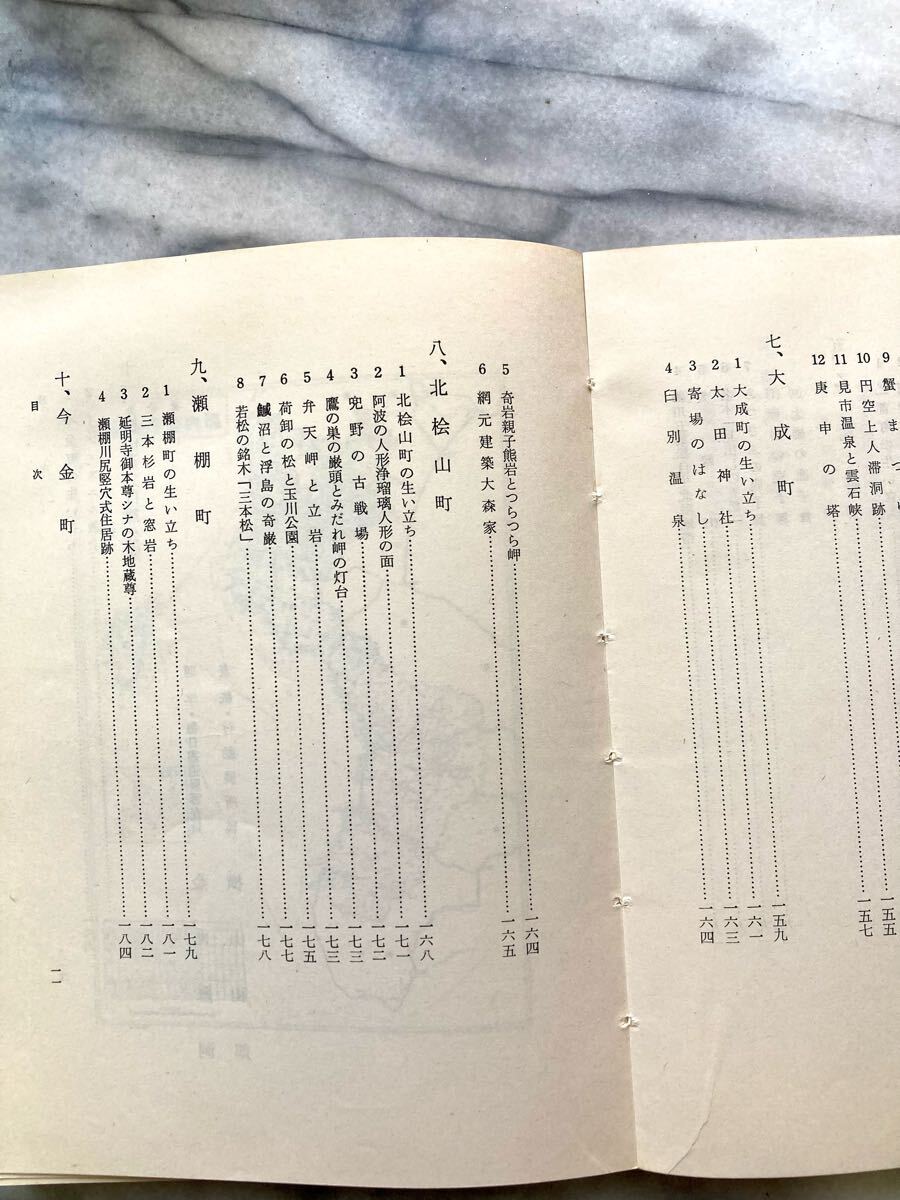 9 蟹まつ
10 円空上人滞洞跡
11 見市温泉と雲石峡……一五五
12 庚申の塔……一五七
七、大成町
1 大成町の生い立ち……一五九
2 太田神社……一六一
3 寄場のはなし……一六三
4 臼別温泉……一六四
5 奇岩親子熊岩とつらつら岬……一六四
6 網元建築大森家……一六五
八、北桧山町
1 北桧山町の生い立ち……一六八
2 阿波の人形浄瑠璃人形の面……一七一
3 兜野の古戦場……一七二
4 鷹の巣の巌頭とみだれ岬の灯台……一七三
5 弁天岬と立岩……一七三
6 荷卸の松と玉川公園……一七五
7 沼と浮島の奇巌……一七七
8 若松の銘木「三本松」……一七八
九、瀬棚町
1 瀬棚町の生い立ち……一七九
2 三本杉岩と窓岩……一八一
3 延明寺御本尊シナの木地蔵尊……一八二
4 瀬棚川尻竪穴式住居跡……一八四
十、今金町
目次 一一